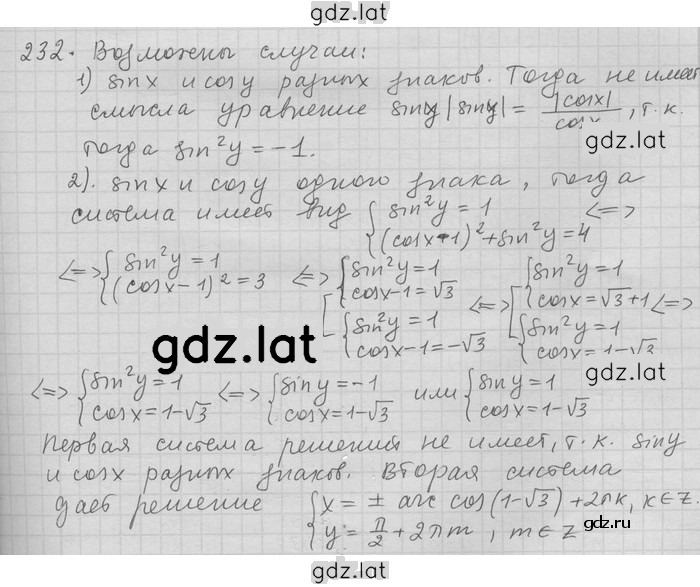 gdz.lat
232. Возможны случаи:
1) sinx и cosy разных знаков. Тогда не имеет
смысла уравнение siny|siny| = |cosx|/cosx, т.к.
тогда sin²y = -1.
2). sinx и cosy одного знака, тогда
система имеет вид { sin²y = 1 <=>
(cosx-1)² + sin²y = 4
<=> { sin²y = 1 <=> [ { sin²y = 1 <=> [ { sin²y = 1 <=>
(cosx-1)² = 3 cosx-1 = √3 cosx = √3+1
{ sin²y = 1 { sin²y = 1
cosx-1 = -√3 cosx = 1-√3
gdz.lat
gdz.lat
gdz.lat
<=> { sin²y = 1 <=> { siny = -1 или { siny = 1
cosx = 1-√3 cosx = 1-√3 cosx = 1-√3
Первая система решений не имеет, т.к. siny
и cosx разных знаков. Вторая система
дает решение { x = ± arc cos(1-√3) + 2πk, k∈Z.
y = π/2 + 2πm, m∈Z
gdz.ru
gdz.lat